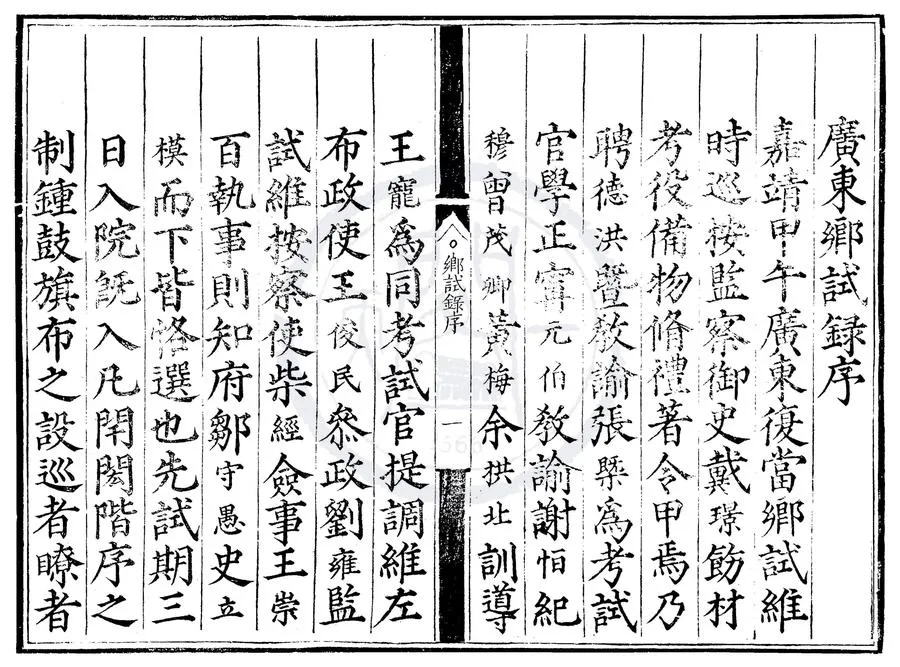 廣東鄉試録序
嘉靖甲午廣東復當鄉試維
時巡按監察御史戴璟飭材
考役備物脩禮著令甲焉乃
聘德洪暨敎諭張槩爲考試
官學正甯元伯敎諭謝恒紀
穆曾茂卿黃梅余拱北訓導
鄉試錄序
一
王寵爲同考試官提調維左
布政使王俊民叅政劉雍監
試維按察使柴經僉事王崇
百執事則知府鄒守愚史立
模而下皆恪選也先試期三
日入院旣入凡闬閎階序之
制鍾鼓旗布之設巡者瞭者